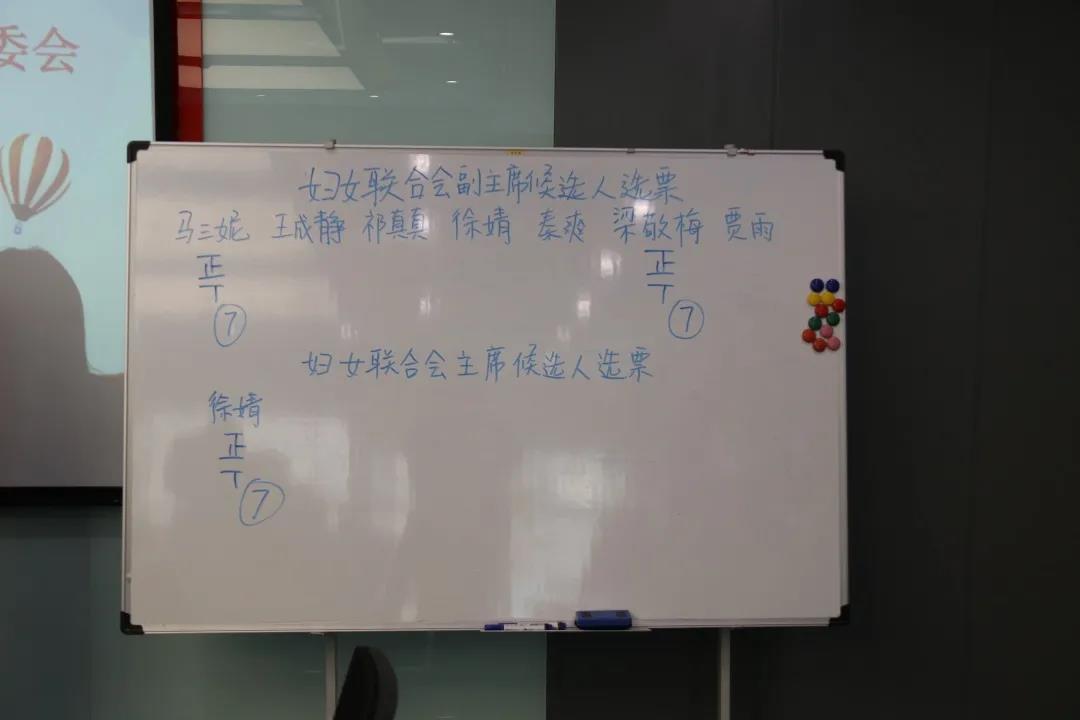 委会
妇女联合会副主席候选人选票
马三妮 王成静 祁真真 徐婧 秦爽 梁敬梅 贾雨
正 正
丅 丅
⑦ ⑦
妇女联合会主席候选人选票
徐婧
正
丅
⑦